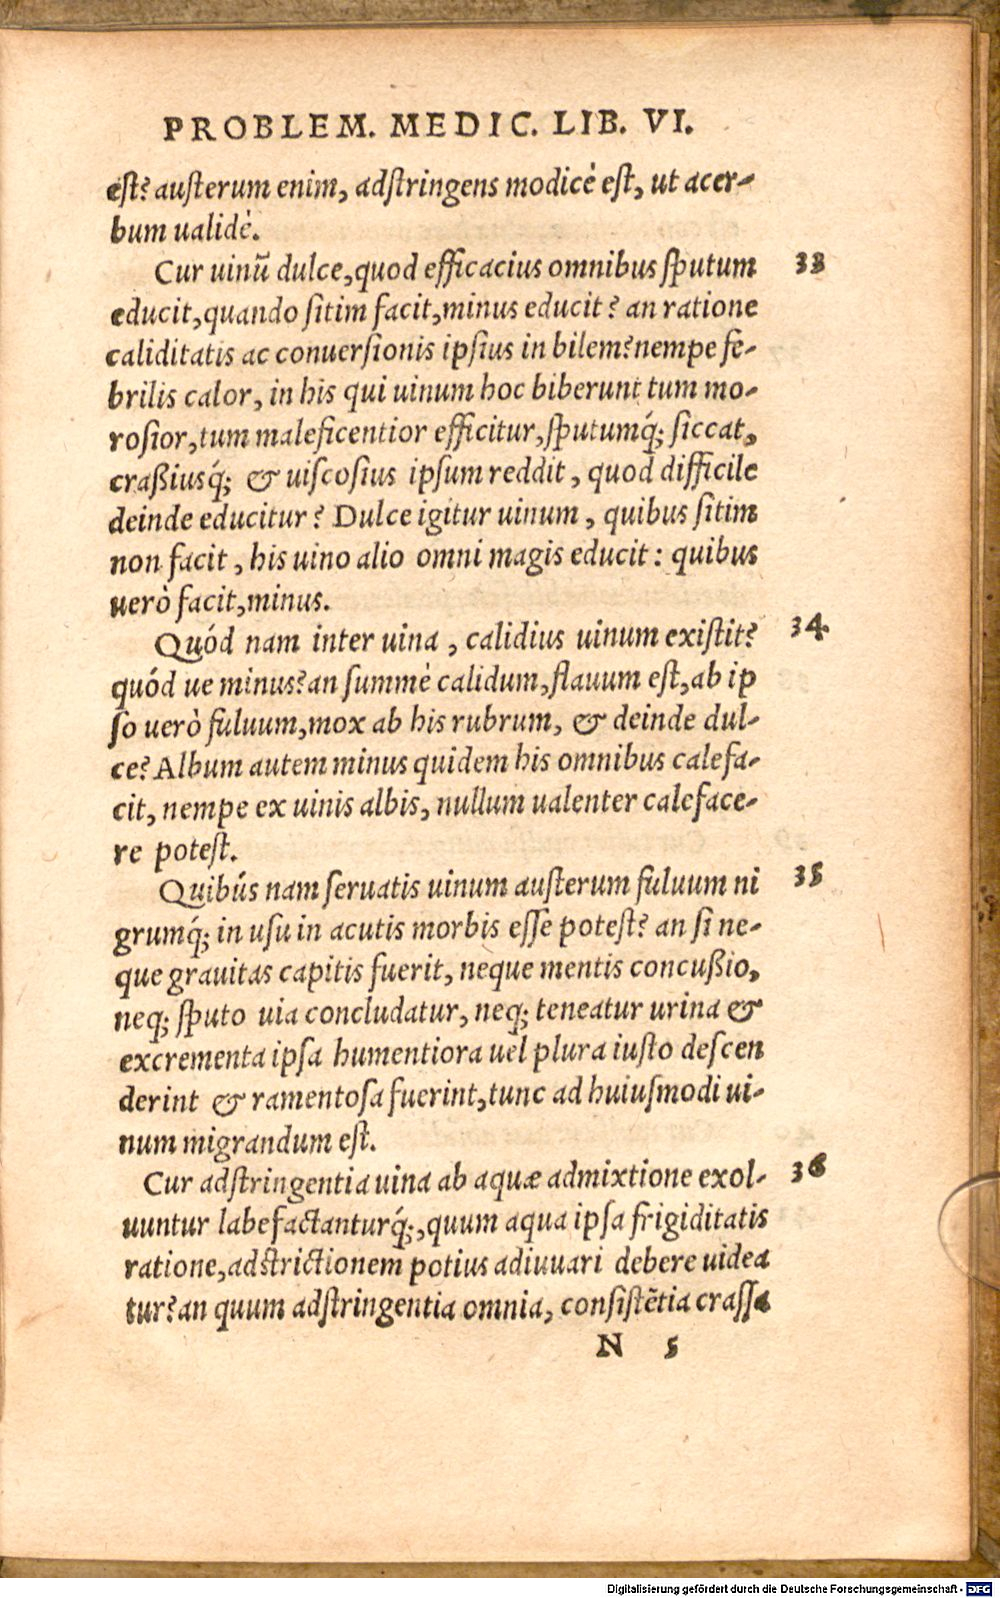 PROBLEM. MEDIC. LIB. VI.
eſt? auſterum enim, adſtringens modicè eſt, ut acer-
bum ualidè.
Cur uinũ dulce, quod efficacius omnibus ſputum 33
educit, quando ſitim facit, minus educit? an ratione
caliditatis ac conuerſionis ipſius in bilem? nempe fe-
brilis calor, in his qui uinum hoc biberunt tum mo-
roſior, tum maleficentior efficitur, ſputumq́; ſiccat,
craßiusq́; & uiſcoſius ipſum reddit, quod difficile
deinde educitur? Dulce igitur uinum, quibus ſitim
non facit, his uino alio omni magis educit: quibus
uerò facit, minus.
Quód nam inter uina, calidius uinum exiſtit? 34
quód ue minus? an ſummè calidum, flauum eſt, ab ip
ſo uerò fuluum, mox ab his rubrum, & deinde dul-
ce? Album autem minus quidem his omnibus calefa-
cit, nempe ex uinis albis, nullum ualenter caleface-
re poteſt.
Quibús nam ſeruatis uinum auſterum fuluum ni 35
grumq́; in uſu in acutis morbis eſſe poteſt? an ſi ne-
que grauitas capitis fuerit, neque mentis concußio,
neq; ſputo uia concludatur, neq; teneatur urina &
excrementa ipſa humentiora uel plura iuſto deſcen
derint & ramentoſa fuerint, tunc ad huiuſmodi ui-
num migrandum eſt.
Cur adſtringentia uina ab aquæ admixtione exol- 36
uuntur labefactanturq́;, quum aqua ipſa frigiditatis
ratione, adſtrictionem potius adiuuari debere uidea
tur? an quum adſtringentia omnia, conſiſtẽtia craſſa
N 5
Digitalisierung gefördert durch die Deutsche Forschungsgemeinschaft - DFG